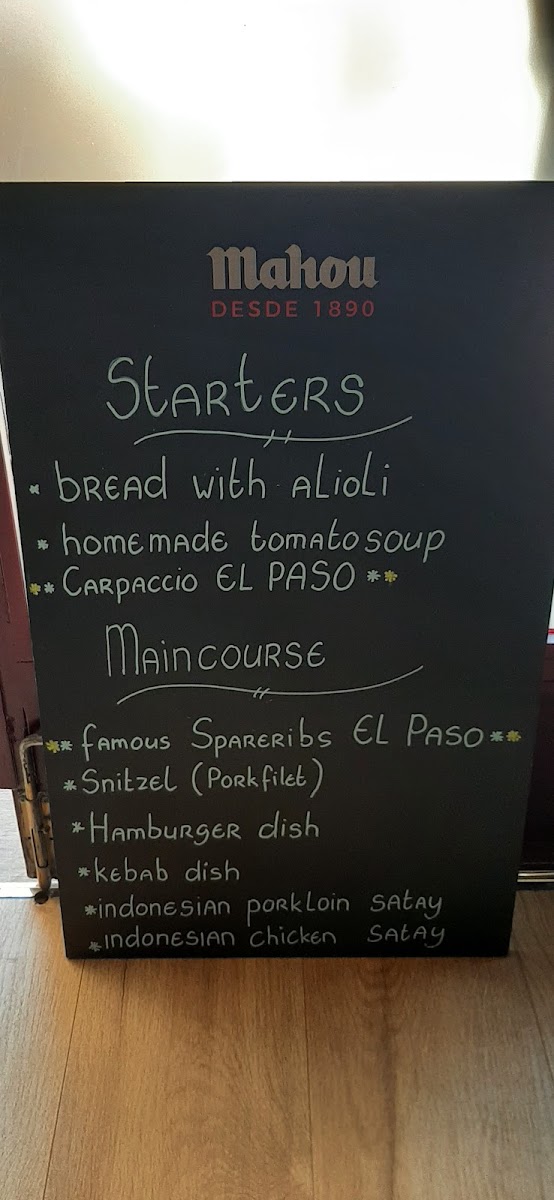 Mahou
DESDE 1890
Starters
* bread with alioli
* homemade tomatosoup
** Carpaccio EL PASO **
Maincourse
** famous Spareribs EL PASO **
* Snitzel (Porkfilet)
* Hamburger dish
* kebab dish
* indonesian porkloin satay
* indonesian chicken satay